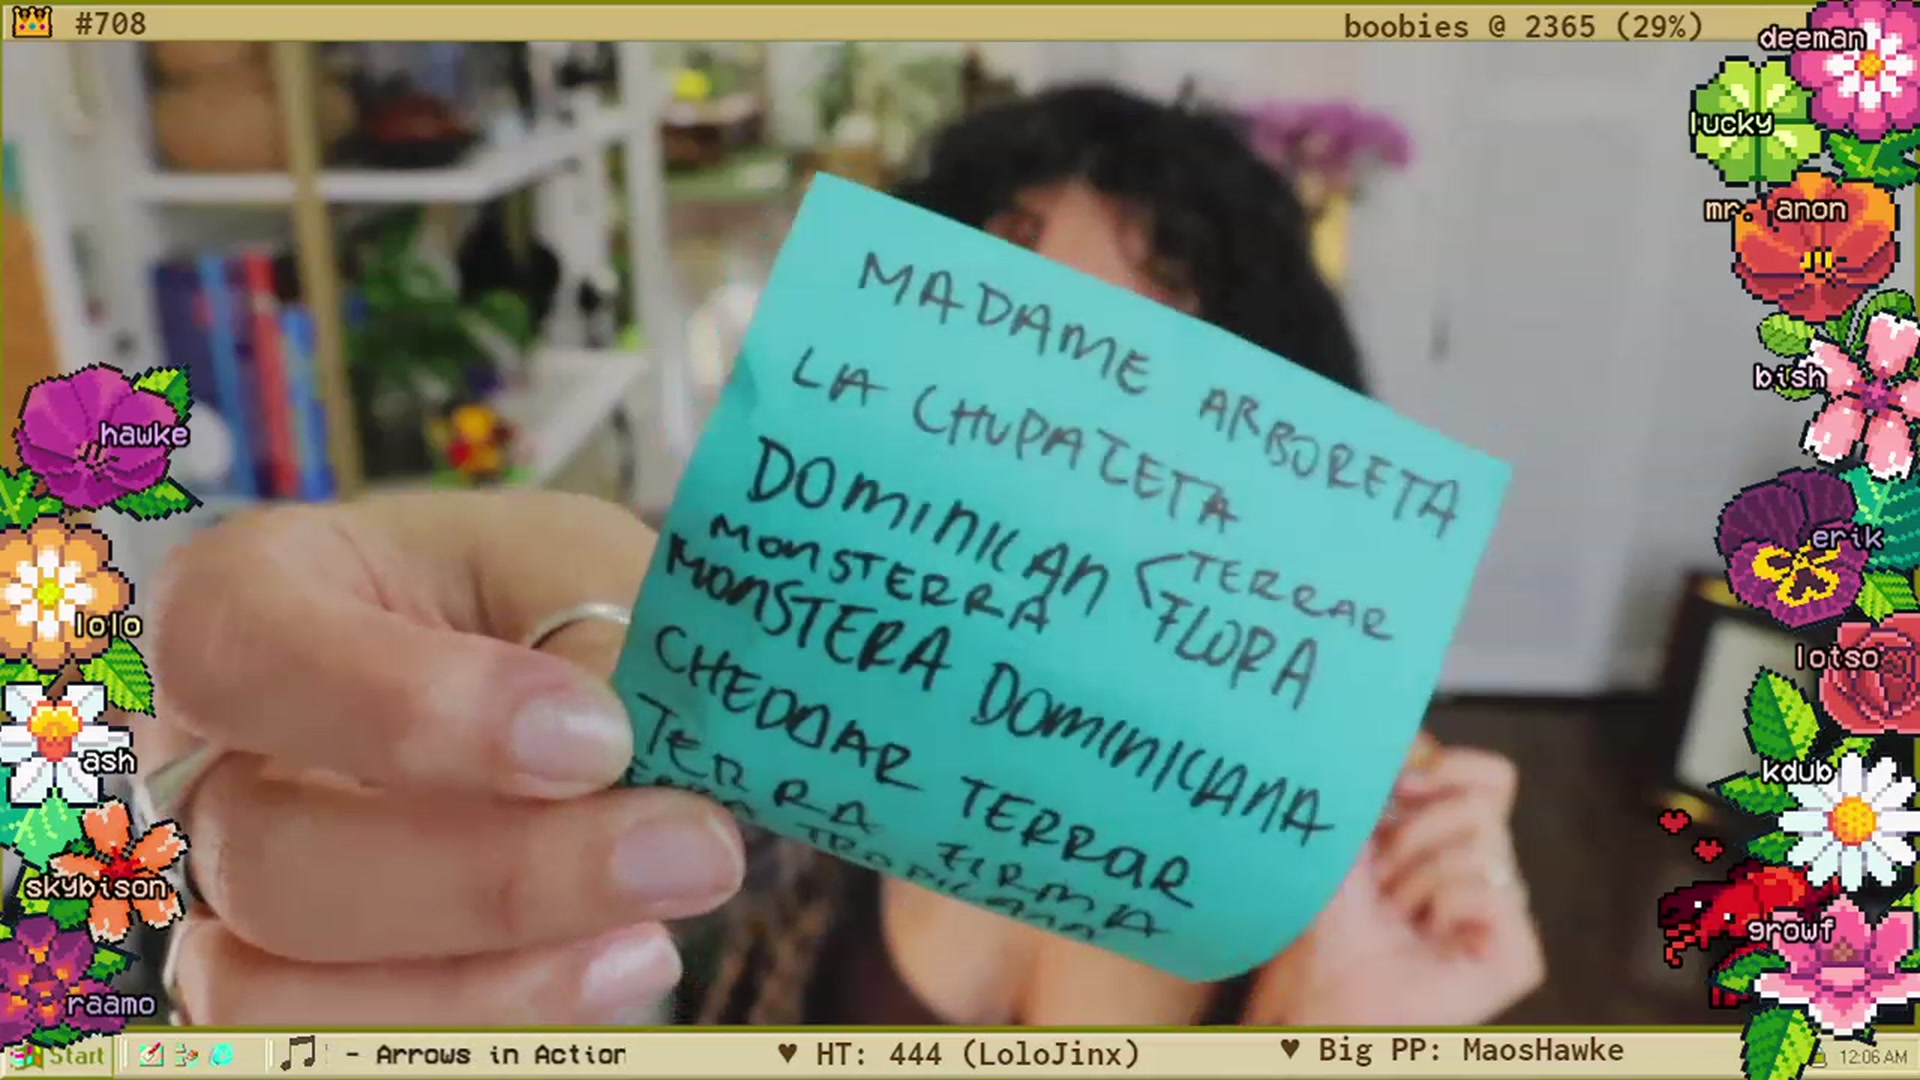 #708
boobies @ 2365 (29%)
deeman
lucky
mr. anon
bish
erik
lotso
kdub
growf
hawke
lolo
ash
skybison
raamo
MADAME ARBORETA
LA CHUPAZETA
DOMINICAN < TERRAR
FLORA
MONSTERRA
MONSTERA DOMINICIANA
CHEDDAR TERROR
TERRA FIRMA
TROPICANA
Start
- Arrows in Action
♥ HT: 444 (LoloJinx)
♥ Big PP: MaosHawke
12:06 AM